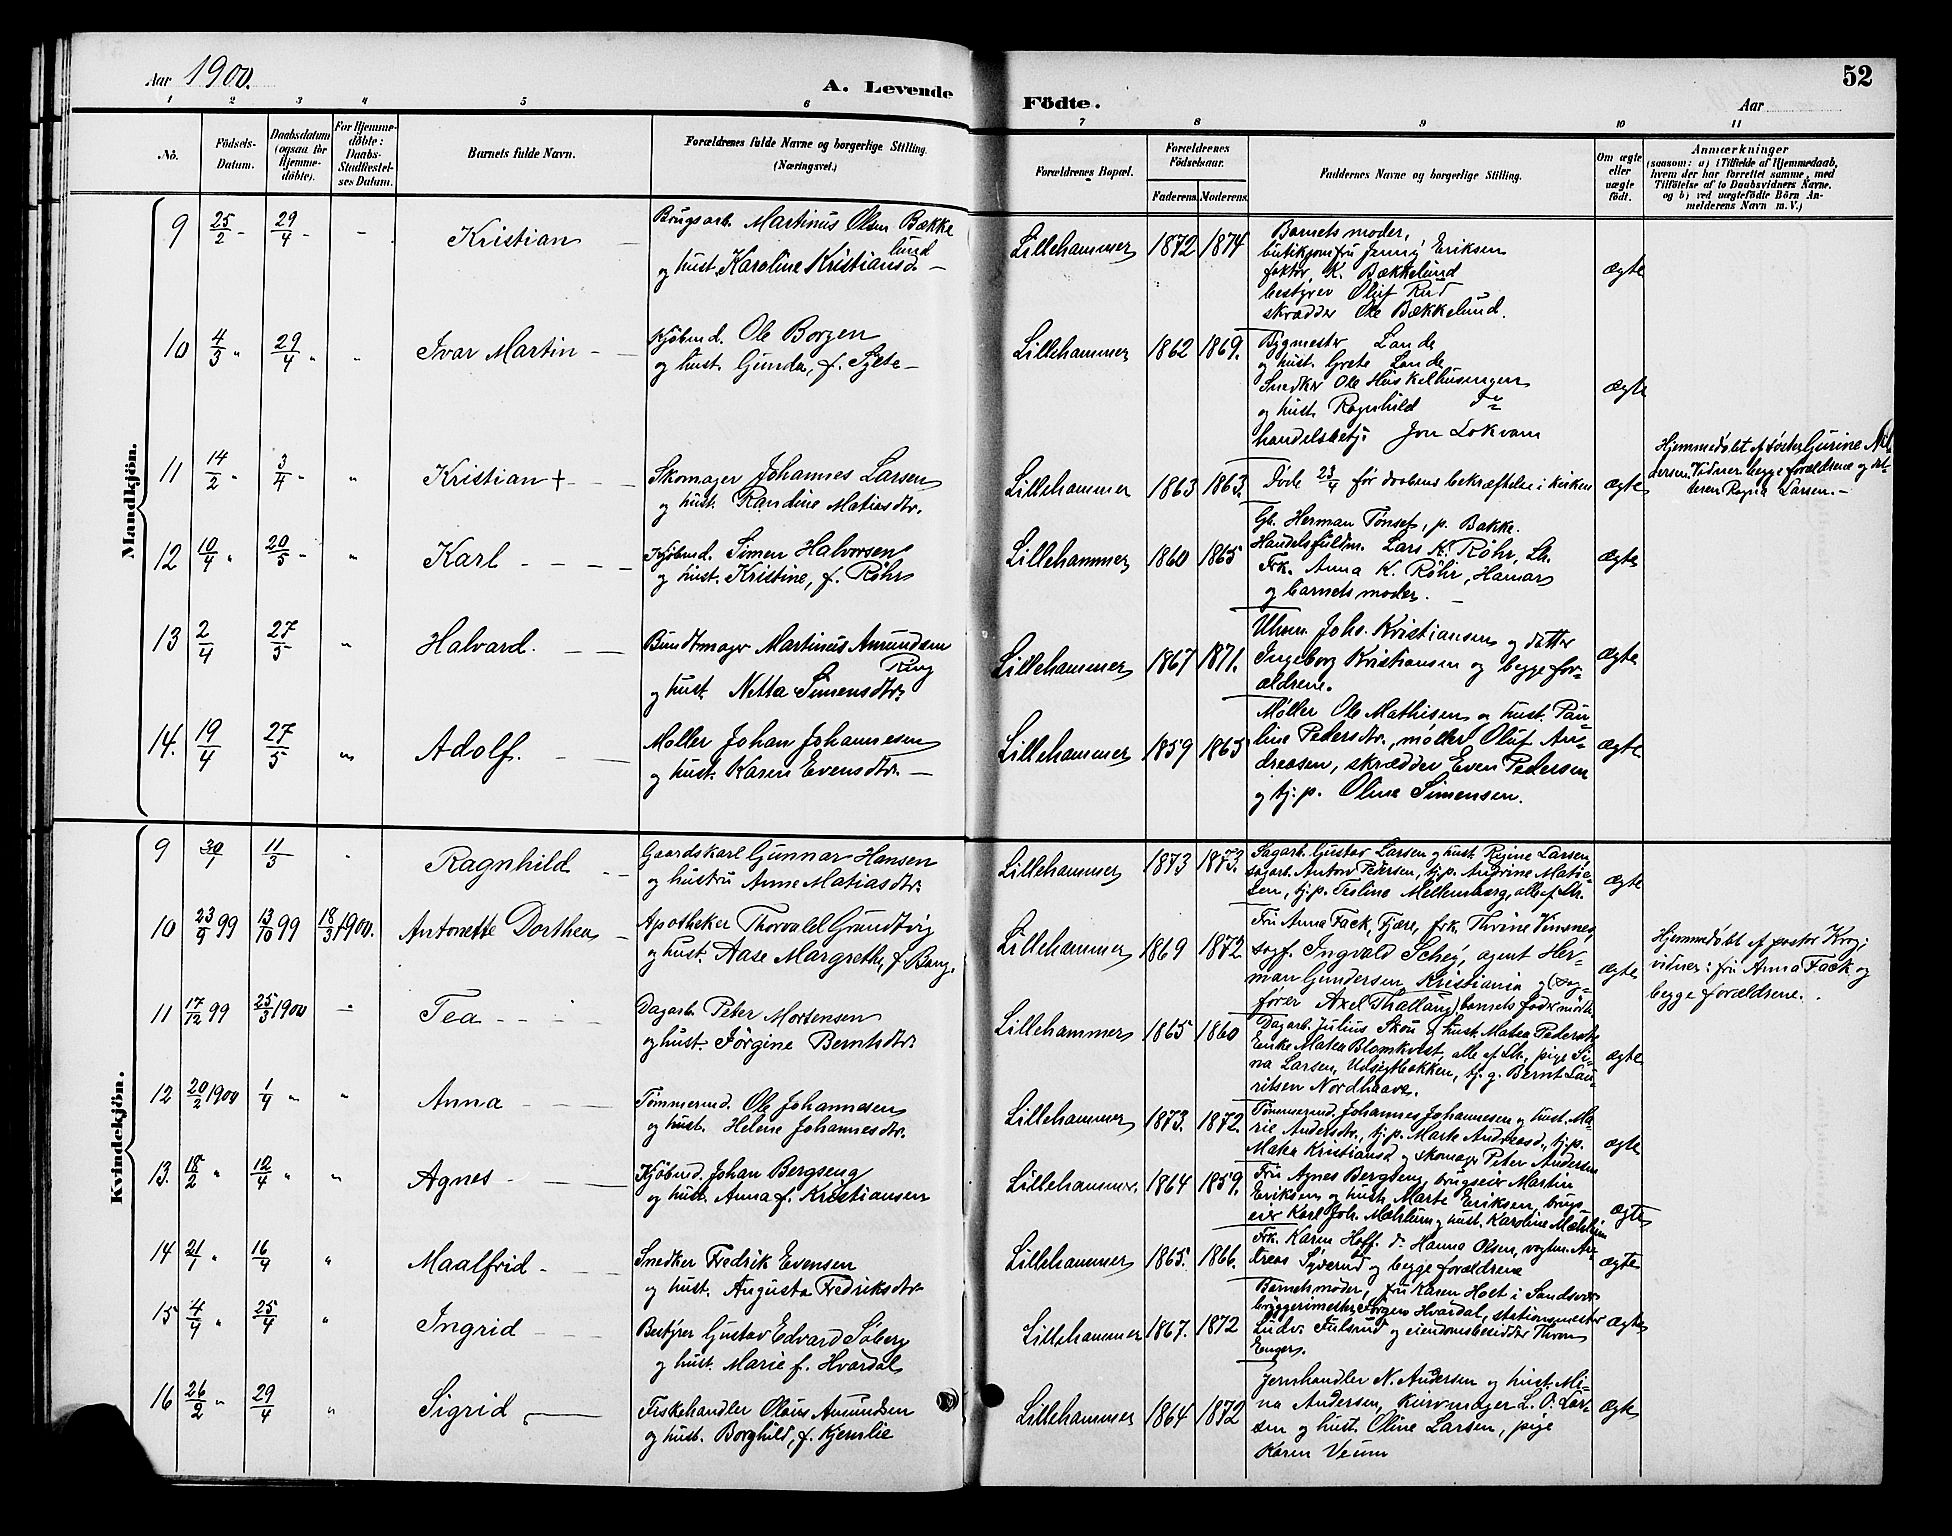 Aar 1900.
A. Levende Födte.
Aar
52
1 2 3 4 5 6 7 8 9 10 11
No.
Födsels-
Datum.
Daabsdatum
(ogsaa for
Hjemme-
döbte).
For Hjemme-
döbte:
Daabs-
Stadfæstel-
ses Datum.
Barnets fulde Navn.
Forældrenes fulde Navne og borgerlige Stilling.
(Næringsvei.)
Forældrenes Bopæl.
Forældrenes
Födselsaar.
Faderens. Moderens.
Faddernes Navne og borgerlige Stilling.
Om ægte
eller
uægte
födt.
Anmærkninger
(saasom: a) i Tilfælde af Hjemmedaab,
hvem der har forrettet samme, med
Tilföielse af to Daabsvidners Navne.
og b) ved uægtefödte Börn An-
melderens Navn m. V.)
Mandkjön.
9 25/2 - 29/4 - - Kristian
Brugsarb. Martinus Olsen Bække
lund
og hust. Karoline Kristiansd. -
Lillehammer 1872 1874
Barnets moder,
butikjomfru Jenny Eriksen
faktor K. Bækkelund
bestyrer Oluf Rud
skrædder Ole Bækkelund.
ægte
10 4/3 " 29/4 " " Ivar Martin -
Kjøbmd. Ole Borgen
og hust. Gunda, f. Sylte -
Lillehammer 1862 1869.
Bygmester Lande
og hust. Grete Lande
Snedker Ole Huskelhusengen
og hust. Ragnhild do
handelsbetj. Jon Lokvam
ægte
11 14/2 " 3/4 " " Kristian +
Skomager Johannes Larsen
og hust. Randine Matiasdtr.
Lillehammer 1863 1863.
Døde 23/4 før daabens bekræftelse i kirken
ægte
Hjemmedøbt af søster Gurine
Vidner begge forældrene og
Ragna Larsen. -
12 10/4 " 20/5 " " Karl
Kjøbmd. Simen Halvorsen
og hust. Kristine, f. Røhr
Lillehammer 1860 1865
Gb. Herman Tønset, p. Bakke.
Handelsfuldm. Lars K. Røhr, Lh.
Frk. Anna K. Røhr, Hamar
og barnets moder.
ægte
13 2/4 27/5 " Halvard.
Bundtmager Martinus Amundsen
og hust. Netta Simensdtr.
Lillehammer 1867 1871.
Uhrm. Johs. Kristiansen og datter
Ingeborg Kristiansen og begge for-
ældrene.
ægte
14. 19/4 27/5 " Adolf.
Møller Johan Johannesen
og hust. Karen Evensdtr. -
Lillehammer 1859 1865
Møller Ole Mathisen og hust. Pau-
line Pedersdtr., møller Oluf An-
dreasen, skrædder Even Pedersen
og tj.p. Oline Simensen.
ægte
Kvindekjön.
9 30/1 11/3 " Ragnhild
Gaardskarl Gunnar Hansen
og hustru Anne Matiasdtr.
Lillehammer 1873 1873.
Sagarb. Gustav Larsen og hust. Regine Larsen,
sagarb. Anton Pedersen, tj.p. Andrine Matie-
sen, tj.p. Teoline Mellemberg, alle af Lh.
ægte
10 23/9 99 13/10 99 18/3 1900. Antonette Dorthea -
Apotheker Thorvald Grundtvig
og hust. Aase Margrethe, f. Bang.
Lillehammer 1869 1872.
Fru Anna Fack, Fjære, frk. Thrine Vinsnes
sagf. Ingvald Schøy, agent Her-
man Gundersen, Kristiania og (sag-
fører Axel Thallaug) barnets fader mødte
ægte
Hjemmedøbt af pastor Krog;
vidner: fru Anna Fack og
begge forældrene.
11 17/12 99 25/3 1900 - Tea
Dagarb. Peter Mortensen
og hust. Jørgine Berntsdtr.
Lillehammer 1865 1860
Dagarb. Julius Skou og hust. Matea Pedersdtr
Enke Matea Blomkvist, alle af Lh., pige Si-
na Larsen, Udsigtbakken, tj. g. Bernt Lau-
ritsen Nordhaave.
ægte
12 20/2 1900 1/4 " " Anna
Tømmermd. Ole Johannesen
og hust. Helene Johannesdtr.
Lillehammer 1873. 1872.
Tømmermd. Johannes Johannesen og hust. Ma-
rie Andersdtr., tj.p. Marte Andreasd., tj.p.
Matea Kristiansd. og skomager Peter Andersen
ægte
13. 18/2 " 12/4 " " Agnes
Kjøbmd. Johan Bergseng
og hust. Anna f. Kristiansen
Lillehammer. 1864 1859.
Fru Agnes Bergseng, brugseier Martin
Eriksen og hust. Marte Eriksen, brugs-
eier Karl Joh. Mæhlum og hust. Karoline Mæhlum
ægte
14 21/1 " 16/4 " Maalfrid
Snedker Fredrik Evensen
og hust. Augusta Fredriksdtr
Lillehammer 1865. 1866.
Frk. Karen Hoff, do Hanna Olsen, vogtm. An-
dreas Syverud og begge forældrene
ægte
15 4/4 " 25/4 " Ingrid
Bestyrer Gustav Edvard Søberg
og hust. Marie f. Hvardal
Lillehammer 1867. 1872
Barnets moder, fru Karen Holt i Sandsvær
bryggerimester Jørgen Hvardal, stationsmester
Ludv. Fulsrud og eiendomsbesidder Thron
Enger.
ægte
16 26/2 " 29/4 " Sigrid
Fiskehandler Olaus Amundsen
og hust. Borghild, f. Kjemlie
Lillehammer 1864 1872
Jernhandler N. Andersen og hust. Mi-
na Andersen, kurvmager L. O. Lar-
sen og hust. Oline Larsen, pige
Karen Veum
ægte